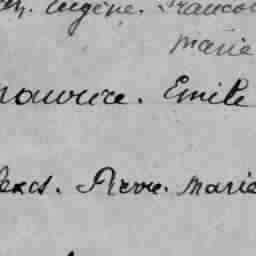 Eugène. Francois
Marie
Maurice. Emile
Pierre. Marie